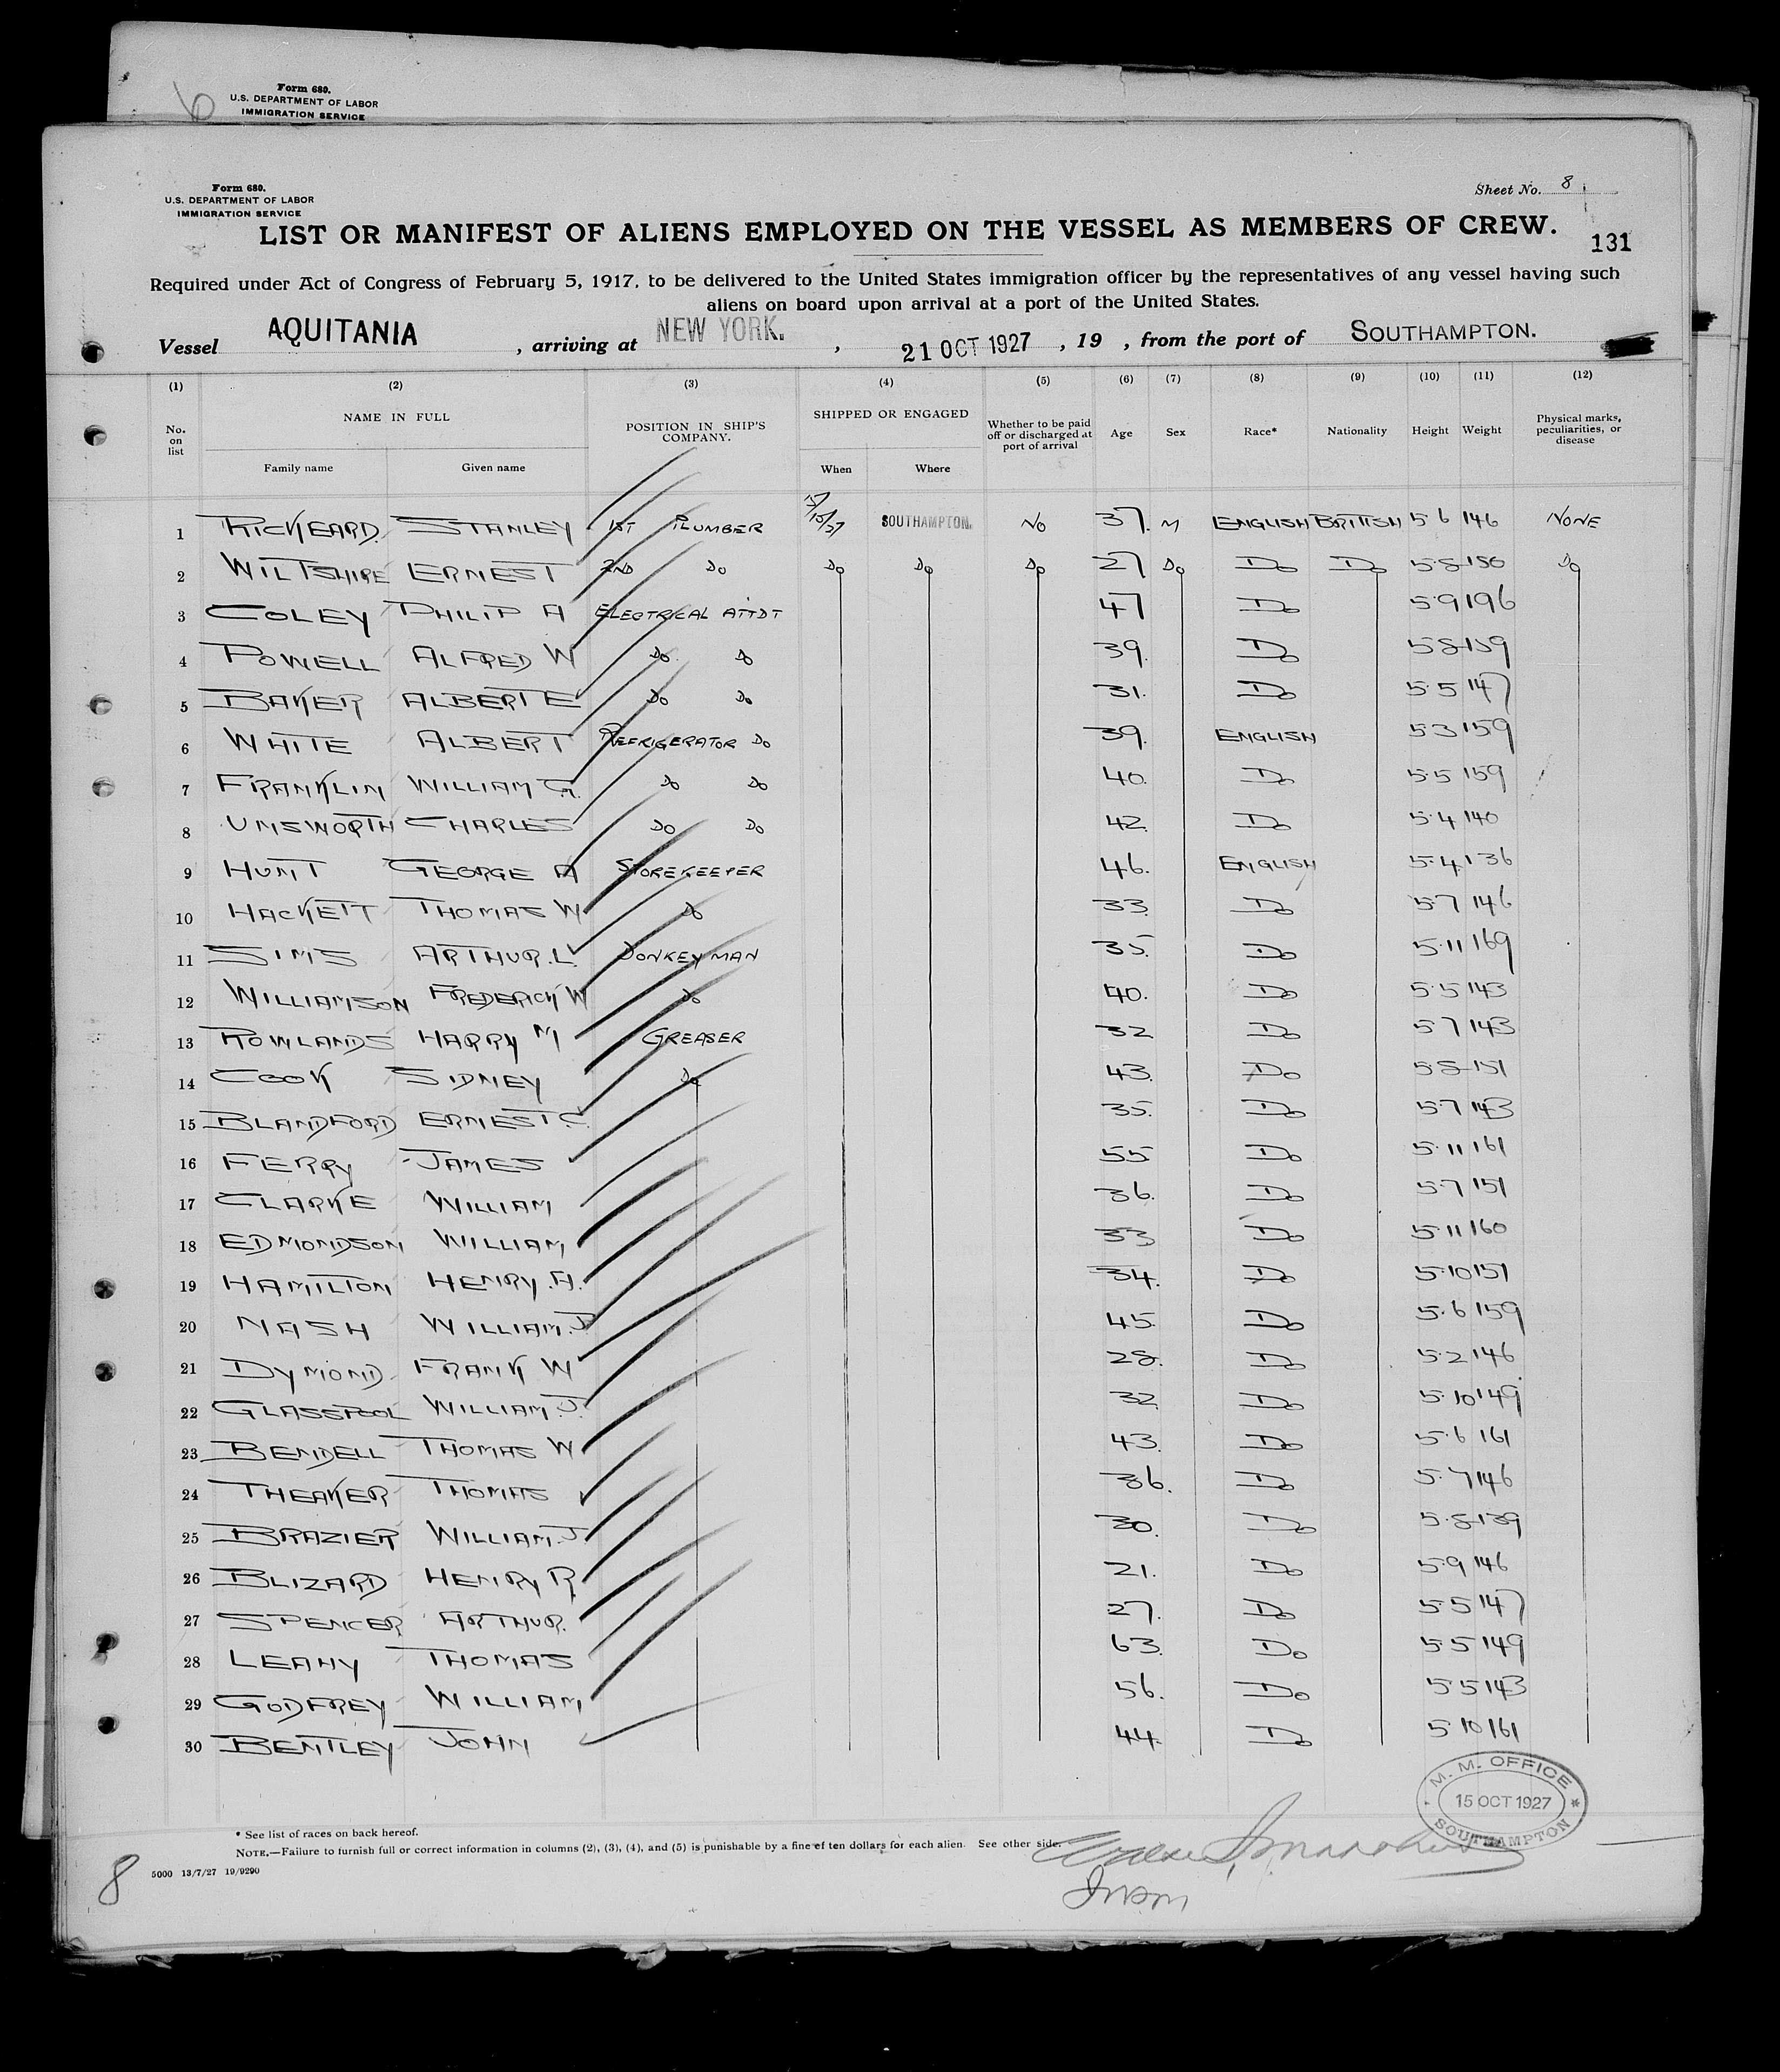 6
Form 680.
U.S. DEPARTMENT OF LABOR
IMMIGRATION SERVICE
Form 680.
U.S. DEPARTMENT OF LABOR
IMMIGRATION SERVICE
Sheet No. 8
LIST OR MANIFEST OF ALIENS EMPLOYED ON THE VESSEL AS MEMBERS OF CREW.
131
Required under Act of Congress of February 5, 1917, to be delivered to the United States immigration officer by the representatives of any vessel having such
aliens on board upon arrival at a port of the United States.
Vessel AQUITANIA , arriving at NEW YORK. , 21 OCT 1927 , 19 , from the port of SOUTHAMPTON.
(1) (2) (3) (4) (5) (6) (7) (8) (9) (10) (11) (12)
No. on list NAME IN FULL POSITION IN SHIP'S COMPANY. SHIPPED OR ENGAGED Whether to be paid off or discharged at port of arrival Age Sex Race* Nationality Height Weight Physical marks, peculiarities, or disease
Family name Given name When Where
1 RICKEARD. STANLEY 1ST PLUMBER 15/10/27 SOUTHAMPTON. NO 37. M ENGLISH BRITISH 5 6 146 NONE
2 WILTSHIRE ERNEST 2ND DO DO DO DO 27 DO DO DO 5 8 156 DO
3 COLEY PHILIP A ELECTRICAL ATTDT 47 DO 5 9 196
4 POWELL ALFRED W DO DO 39. DO 5 8 159
5 BAKER ALBERT E DO DO 31. DO 5.5 147
6 WHITE ALBERT REFRIGERATOR DO 39. ENGLISH 5 3 159
7 FRANKLIN WILLIAM G. DO DO 40. DO 5.5 159
8 UNSWORTH CHARLES DO DO 42. DO 5.4 140
9 HUNT GEORGE A STOREKEEPER 46. ENGLISH 5.4 136
10 HACKETT THOMAS W DO 33. DO 5.7 146
11 SIMS ARTHUR.L. DONKEYMAN 35. DO 5.11 169
12 WILLIAMSON FREDERICK W DO 40. DO 5.5 143
13 ROWLANDS HARRY M GREASER 32 DO 5 7 143
14 COOK SIDNEY DO 43. DO 5 8 151
15 BLANDFORD ERNEST C. 35. DO 5.7 143
16 FERRY JAMES 55 DO 5.11 161
17 CLARKE WILLIAM 36. DO 5.7 151
18 EDMONDSON WILLIAM 33 DO 5.11 160
19 HAMILTON HENRY.A. 34. DO 5.10 151
20 NASH WILLIAM.J 45. DO 5.6 159
21 DYMOND FRANK W 28. DO 5.2 146
22 GLASSPOOL WILLIAM.J. 32. DO 5.10 149
23 BENDELL THOMAS W 43. DO 5.6 161
24 THEAKER THOMAS 36. DO 5.7 146
25 BRAZIER WILLIAM.J 30. DO 5.8 139
26 BLIZARD HENRY R. 21. DO 5.9 146
27 SPENCER ARTHUR. 27. DO 5.5 147
28 LEAHY THOMAS 63. DO 5.5 149
29 GODFREY WILLIAM 56. DO 5.5 143
30 BENTLEY JOHN 44. DO 5.10 161
M. M. OFFICE
15 OCT 1927
SOUTHAMPTON
* See list of races on back hereof.
NOTE.—Failure to furnish full or correct information in columns (2), (3), (4), and (5) is punishable by a fine of ten dollars for each alien. See other side.
5000 13/7/27 19/9290
8